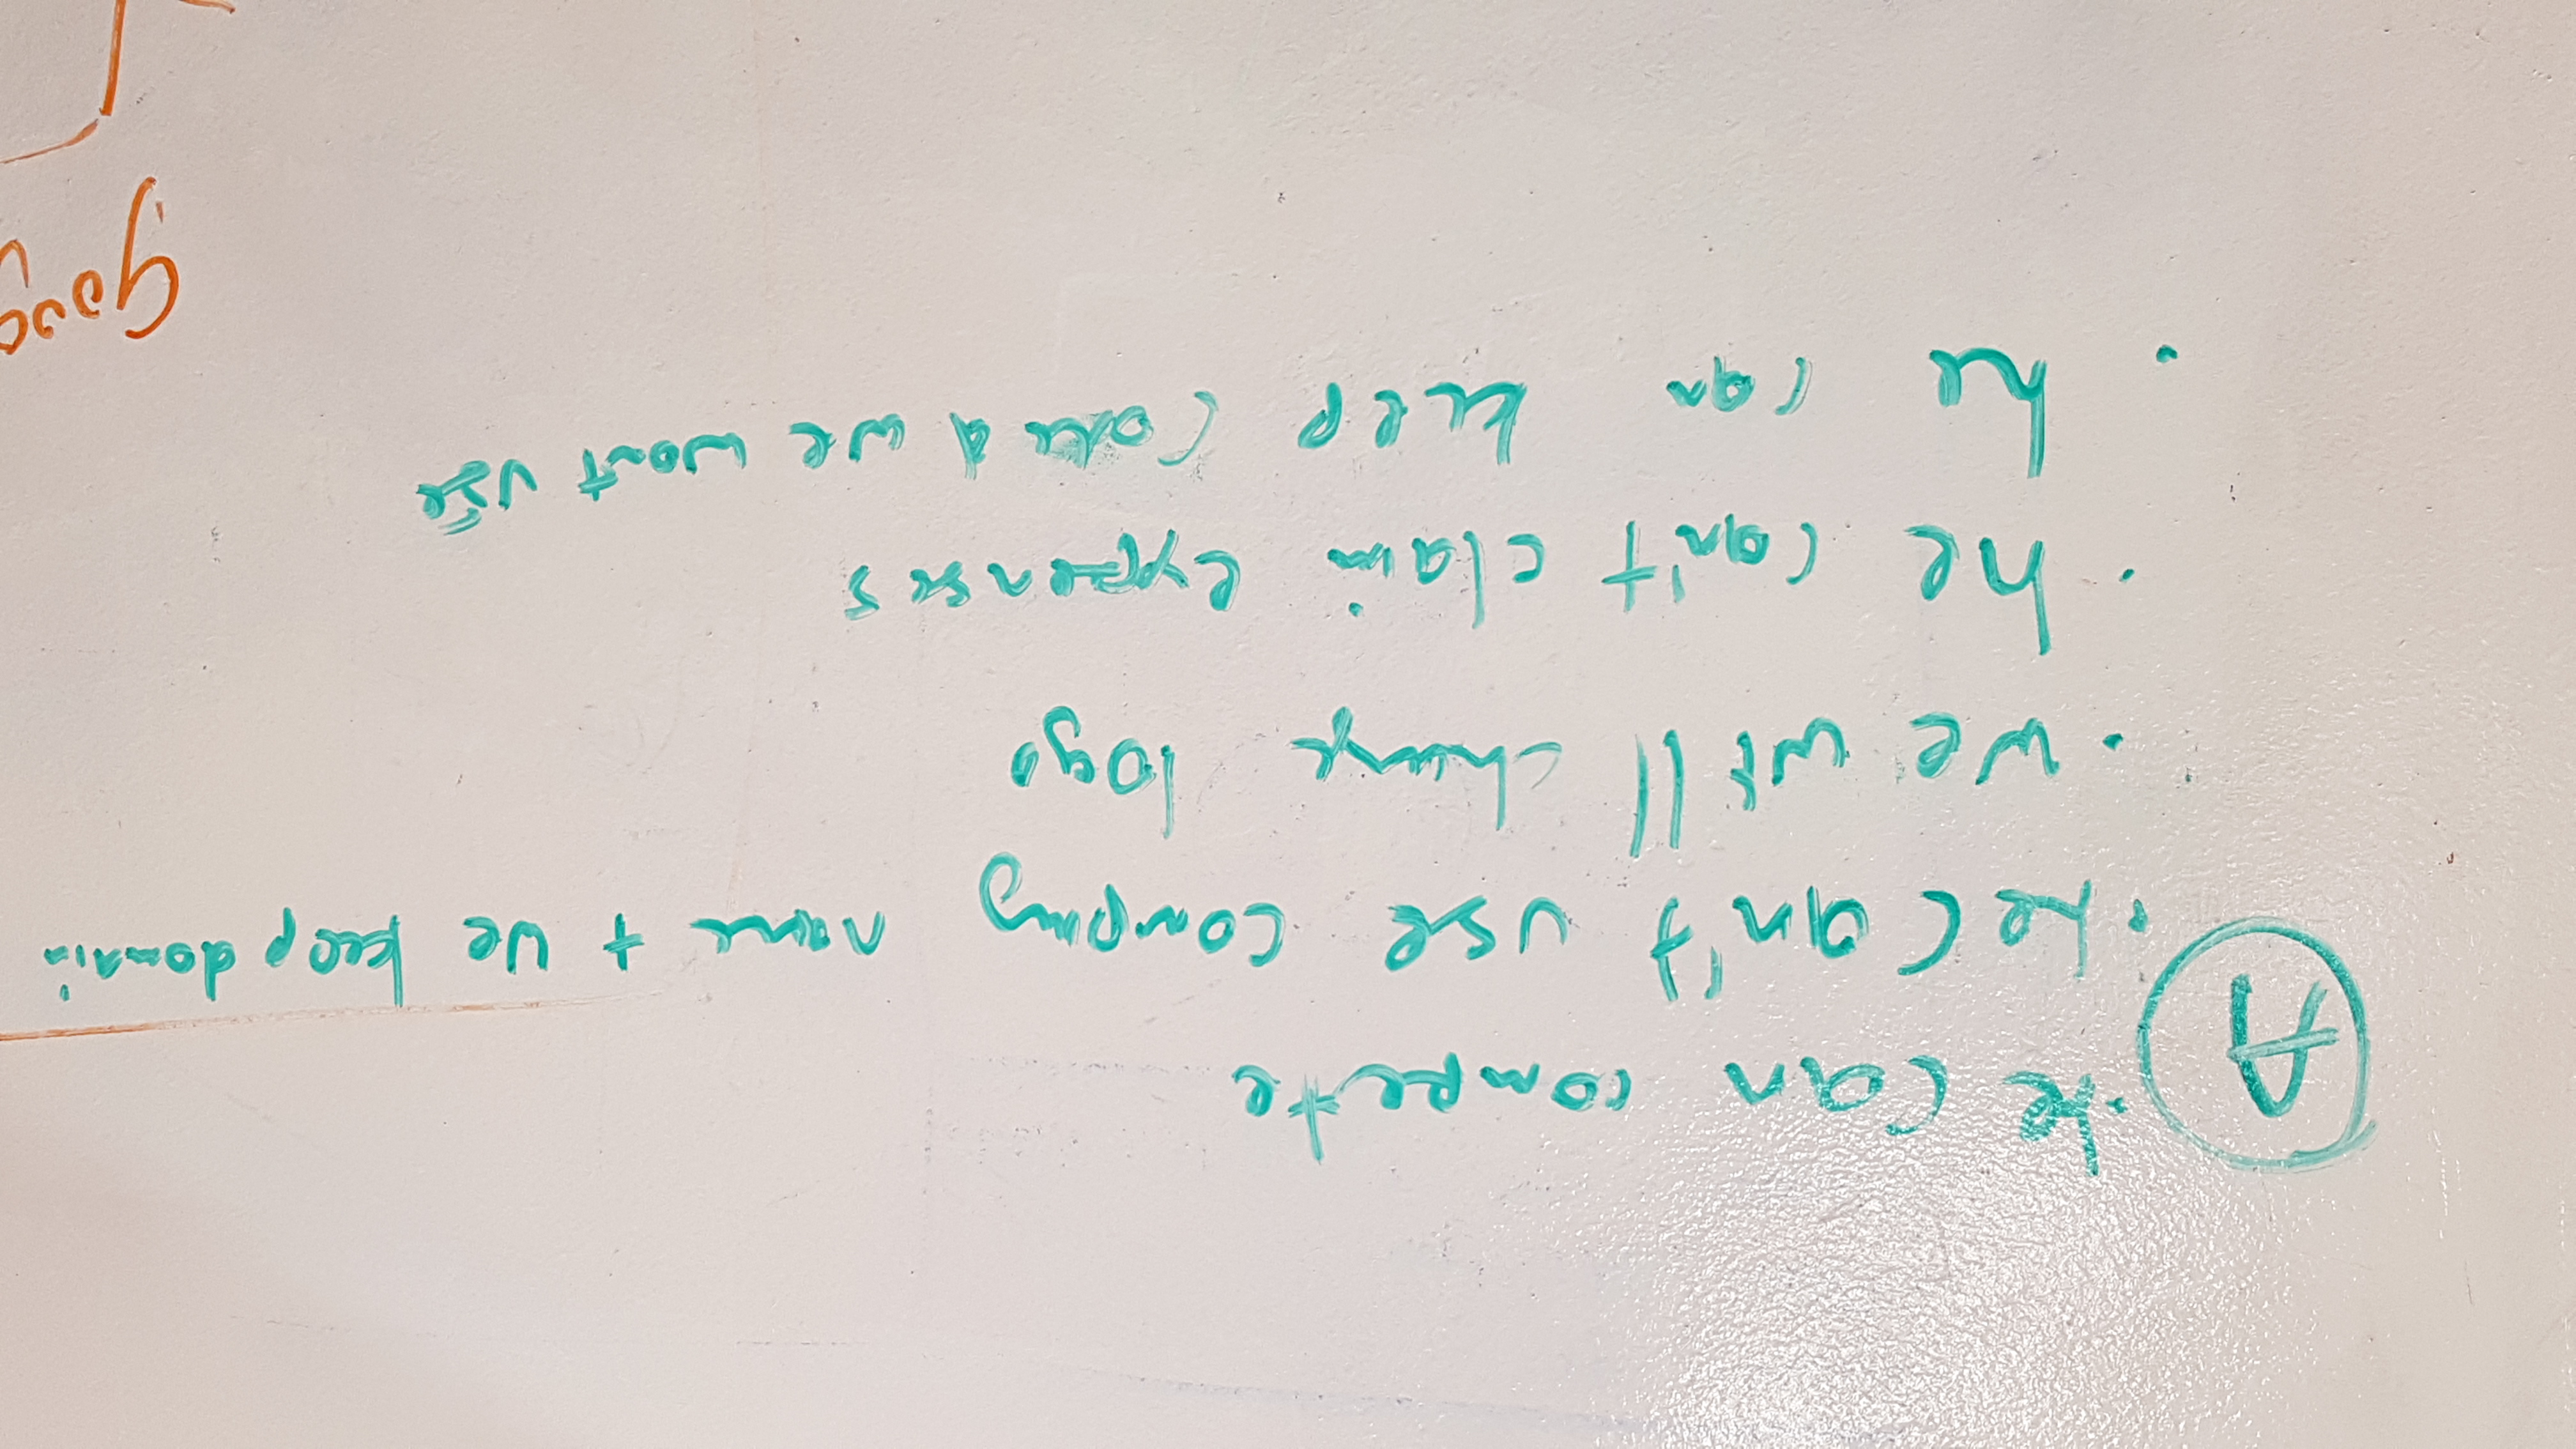 A
· he can compete
· he can't use company name + we keep domain
· we will change logo
· he can't claim expenses
· he can keep code & we wont use